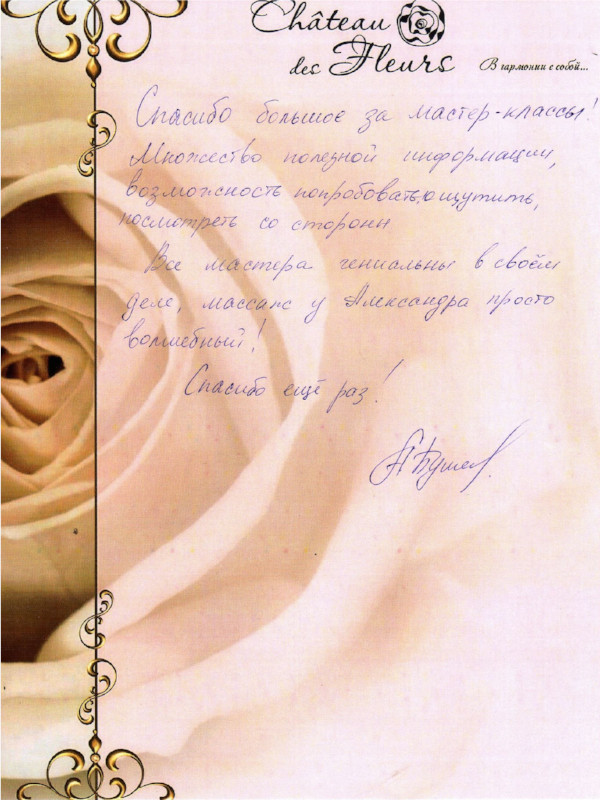 Château
des Fleurs
В гармонии с собой...
Спасибо большое за мастер-классы!
Множество полезной информации,
возможность попробовать, ощутить,
посмотреть со стороны
Все мастера гениальны в своём
деле, массаж у Александра просто
волшебный!
Спасибо ещё раз!